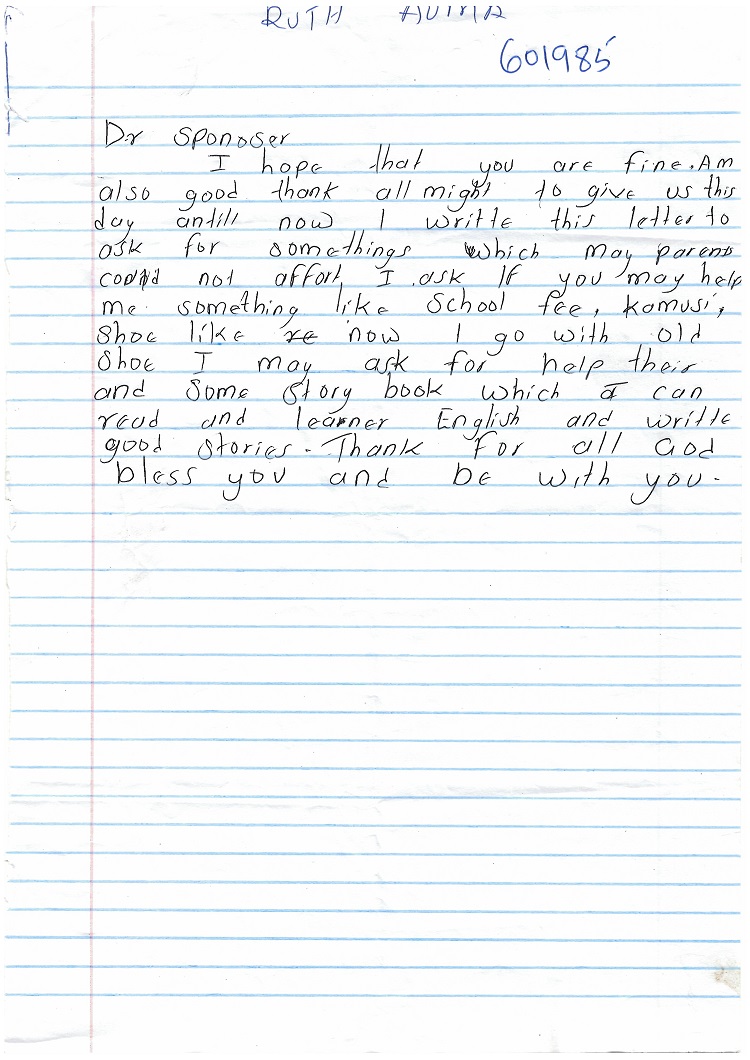 RUTH AUMA
601985
Dr sponoser
I hope that you are fine. Am
also good thank all might to give us this
day antill now I writte this letter to
ask for somethings which may parent
could not affort, I ask If you may help
me something like School fee, kamusi,
Shoe like re now I go with old
Shoe I may ask for help their
and some story book which I can
read and learner English and writte
good stories. Thank for all God
bless you and be with you.